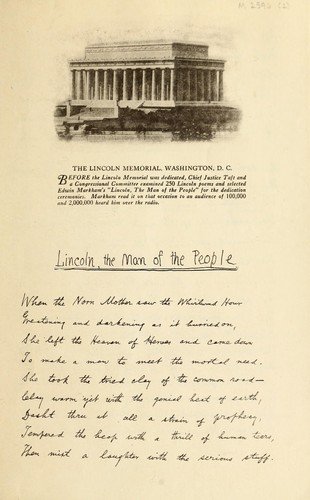 M 2396 (2)
THE LINCOLN MEMORIAL, WASHINGTON, D. C.
BEFORE the Lincoln Memorial was dedicated, Chief Justice Taft and
a Congressional Committee examined 250 Lincoln poems and selected
Edwin Markham's "Lincoln, The Man of the People" for the dedication
ceremonies. Markham read it on that occasion to an audience of 100,000
and 2,000,000 heard him over the radio.
Lincoln, the Man of the People
When the Norn Mother saw the Whirlwind Hour
Greatening and darkening as it hurried on,
She left the Heaven of Heroes and came down
To make a man to meet the mortal need.
She took the tried clay of the common road—
Clay warm yet with the genial heat of earth,
Dasht thru it all a strain of prophecy,
Tempered the heap with a thrill of human tears,
Then mixt a laughter with the serious stuff.